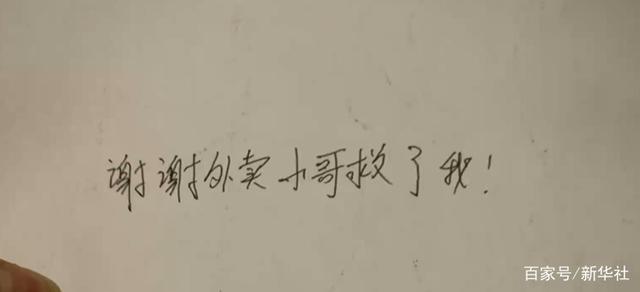 谢谢外卖小哥救了我！
百家号/新华社